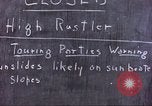 CLOSED
High Rustler
Touring Parties Warning
unslides likely on sunbeate
Slopes